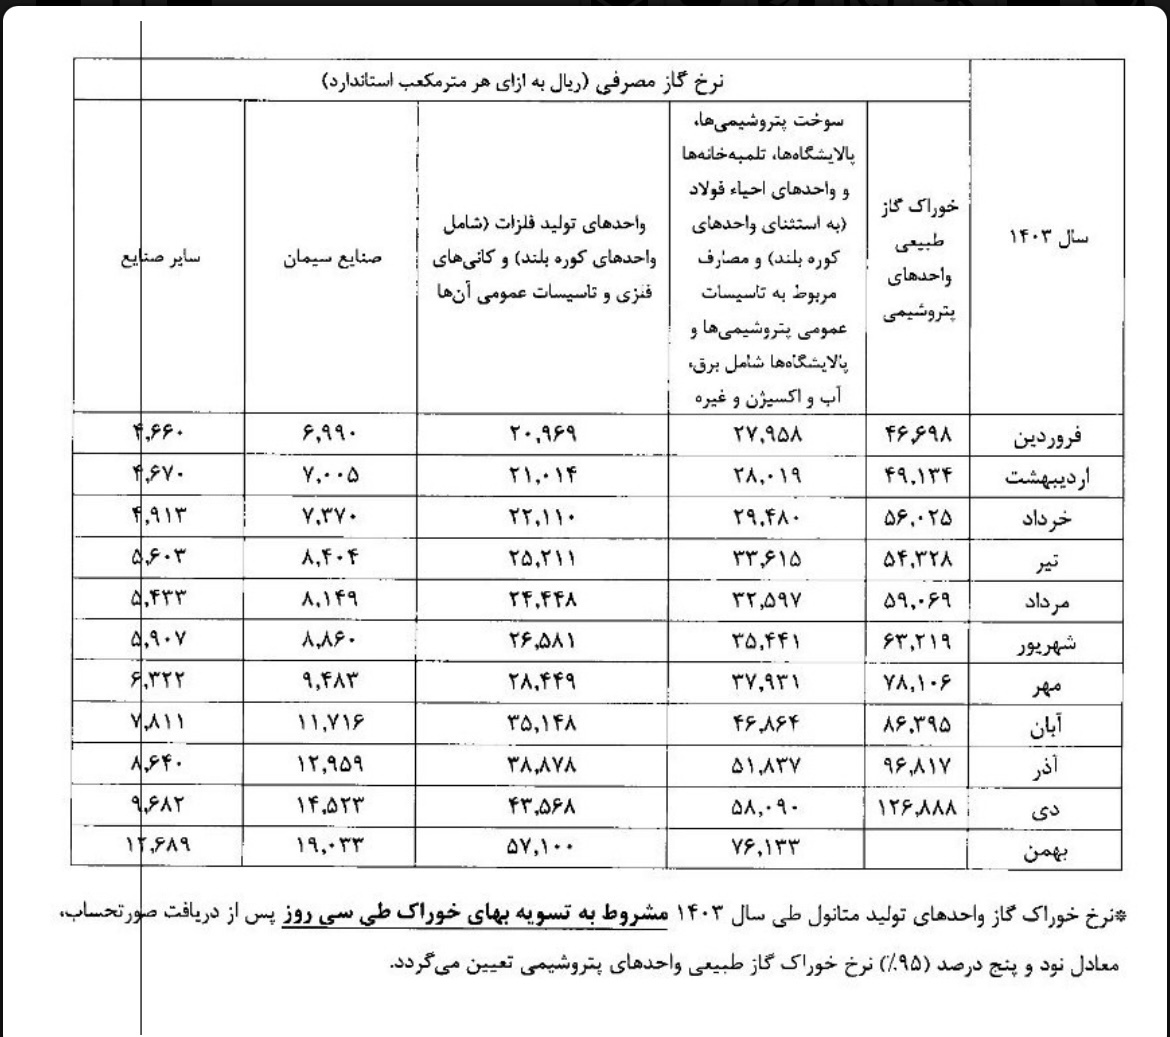 نرخ گاز مصرفی (ریال به ازای هر مترمکعب استاندارد)
سال ۱۴۰۳
خوراک گاز
طبیعی
واحدهای
پتروشیمی
سوخت پتروشیمی‌ها،
پالایشگاه‌ها، تلمبه‌خانه‌ها
و واحدهای احیاء فولاد
(به استثنای واحدهای
کوره بلند) و مصارف
مربوط به تاسیسات
عمومی پتروشیمی‌ها و
پالایشگاه‌ها شامل برق،
آب و اکسیژن و غیره
واحدهای تولید فلزات (شامل
واحدهای کوره بلند) و کانی‌های
فلزی و تاسیسات عمومی آن‌ها
صنایع سیمان
سایر صنایع
فروردین ۴۶,۶۹۸ ۲۷,۹۵۸ ۲۰,۹۶۹ ۶,۹۹۰ ۴,۶۶۰
اردیبهشت ۴۹,۱۳۴ ۲۸,۰۱۹ ۲۱,۰۱۴ ۷,۰۰۵ ۴,۶۷۰
خرداد ۵۶,۰۲۵ ۲۹,۴۸۰ ۲۲,۱۱۰ ۷,۳۷۰ ۴,۹۱۳
تیر ۵۴,۳۲۸ ۳۳,۶۱۵ ۲۵,۲۱۱ ۸,۴۰۴ ۵,۶۰۳
مرداد ۵۹,۰۶۹ ۳۲,۵۹۷ ۲۴,۴۴۸ ۸,۱۴۹ ۵,۴۳۳
شهریور ۶۳,۲۱۹ ۳۵,۴۴۱ ۲۶,۵۸۱ ۸,۸۶۰ ۵,۹۰۷
مهر ۷۸,۱۰۶ ۳۷,۹۳۱ ۲۸,۴۴۹ ۹,۴۸۳ ۶,۳۲۲
آبان ۸۶,۳۹۵ ۴۶,۸۶۴ ۳۵,۱۴۸ ۱۱,۷۱۶ ۷,۸۱۱
آذر ۹۶,۸۱۷ ۵۱,۸۳۷ ۳۸,۸۷۸ ۱۲,۹۵۹ ۸,۶۴۰
دی ۱۲۶,۸۸۸ ۵۸,۰۹۰ ۴۳,۵۶۸ ۱۴,۵۲۳ ۹,۶۸۲
بهمن ۷۶,۱۳۳ ۵۷,۱۰۰ ۱۹,۰۳۳ ۱۲,۶۸۹
*نرخ خوراک گاز واحدهای تولید متانول طی سال ۱۴۰۳ مشروط به تسویه بهای خوراک طی سی روز پس از دریافت صورتحساب،
معادل نود و پنج درصد (۹۵٪) نرخ خوراک گاز طبیعی واحدهای پتروشیمی تعیین می‌گردد.